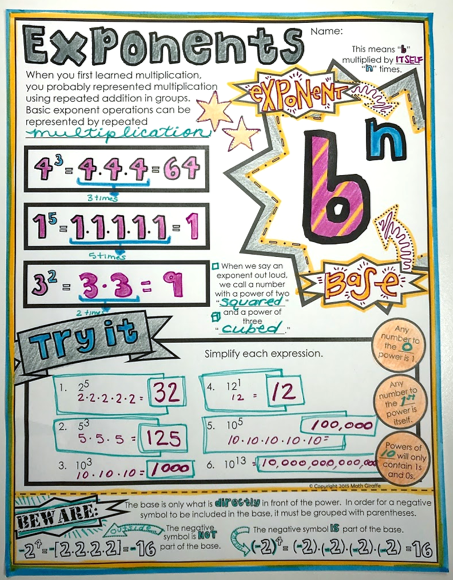 Exponents
Name:
This means "b"
multiplied by ITSELF
"n" times.
When you first learned multiplication,
you probably represented multiplication
using repeated addition in groups.
Basic exponent operations can be
represented by repeated
multiplication
EXPONENT
bⁿ
BASE
4³ = 4·4·4 = 64
3 times
1⁵ = 1·1·1·1·1 = 1
5 times
3² = 3·3 = 9
2 times
When we say an
exponent out loud,
we call a number
with a power of two
"squared"
and a power of
three
"cubed."
Try it
Simplify each expression.
1. 2⁵
2·2·2·2·2 = 32
2. 5³
5·5·5 = 125
3. 10³
10·10·10 = 1000
4. 12¹
12 = 12
5. 10⁵ 100,000
10·10·10·10·10=
6. 10¹³ = 10,000,000,000,000
Any
number to
the 0
power is 1.
Any
number to
the 1st
power is
itself.
Powers of
10 will only
contain 1s
and 0s.
© Copyright 2015 Math Giraffe
BEWARE:
The base is only what is directly in front of the power. In order for a negative
symbol to be included in the base, it must be grouped with parentheses.
The negative
symbol is NOT
part of the base.
-2⁴ = -[2·2·2·2] = -16
The negative symbol IS part of the base.
(-2)⁴ = (-2)·(-2)·(-2)·(-2) = 16